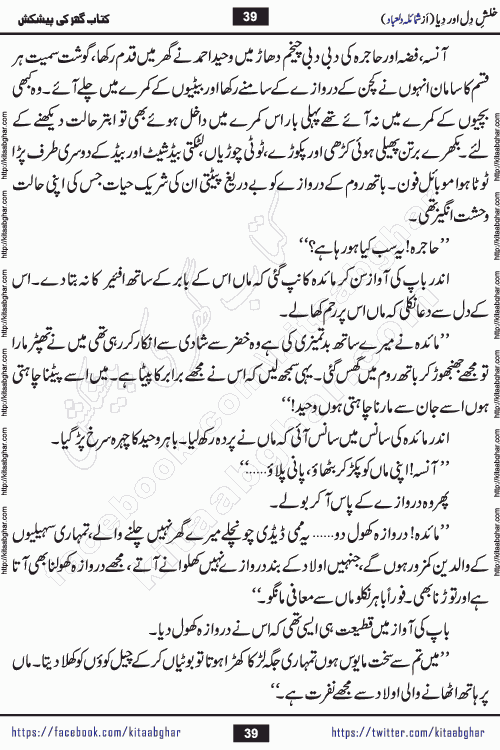 خلشِ دِل اور دِیا (از شمائلہ دلعباد)
39
کتاب گھر کی پیشکش
آنسہ، فضہ اور حاجرہ کی دبی دبی چیخم دھاڑ میں وحید احمد نے گھر میں قدم رکھا، گوشت سمیت ہر
قسم کا سامان انہوں نے کچن کے دروازے کے سامنے رکھا اور بیٹیوں کے کمرے میں چلے آئے۔ وہ کبھی
بچیوں کے کمرے میں نہ آئے تھے پہلی بار اس کمرے میں داخل ہوئے بھی تو ابتر حالت دیکھنے کے
لئے۔ بکھرے برتن پھیلی ہوئی کڑھی اور پکوڑے، ٹوٹی چوڑیاں، لٹکتی بیڈ شیٹ اور بیڈ کے دوسری طرف پڑا
ٹوٹا ہوا موبائل فون۔ باتھ روم کے دروازے کو بے دریغ پیٹتی ان کی شریک حیات جس کی اپنی حالت
وحشت انگیز تھی۔
”حاجرہ! یہ سب کیا ہو رہا ہے؟“
اندر باپ کی آواز سن کر مائدہ کانپ گئی کہ ماں اس کے بابر کے ساتھ افئیر کا نہ بتا دے۔ اس
کے دل سے دعا نکلی کہ ماں اس پر رحم کھا لے۔
”مائدہ نے میرے ساتھ بدتمیزی کی ہے وہ خضر سے شادی سے انکار کر رہی تھی میں نے تھپڑ مارا
تو مجھے جھنجھوڑ کر باتھ روم میں گھس گئی۔ یہی سمجھ لیں کہ اس نے مجھے برابر کا پیٹا ہے۔ میں اسے پیٹنا چاہتی
ہوں اسے جان سے مارنا چاہتی ہوں وحید!“
اندر مائدہ کی سانس میں سانس آئی کہ ماں نے پردہ رکھ لیا۔ باہر وحید کا چہرہ سرخ پڑ گیا۔
”آنسہ! اپنی ماں کو پکڑ کر بٹھاؤ، پانی پلاؤ......“
پھر وہ دروازے کے پاس آ کر بولے۔
”مائدہ! دروازہ کھول دو...... یہ ممی ڈیڈی چونچلے میرے گھر نہیں چلنے والے، تمہاری سہیلیوں
کے والدین کمزور ہوں گے، جنہیں اولاد کے بند دروازے نہیں کھلوانے آتے، مجھے دروازہ کھولنا بھی آتا
ہے اور توڑنا بھی۔ فوراً باہر نکلو ماں سے معافی مانگو۔“
باپ کی آواز میں قطیعت ہی ایسی تھی کہ اس نے دروازہ کھول دیا۔
”میں تم سے سخت مایوس ہوں تمہاری جگہ لڑکا کھڑا ہوتا تو بوٹیاں کر کے چیل کوؤں کو کھلا دیتا۔ ماں
پر ہاتھ اٹھانے والی اولاد سے مجھے نفرت ہے۔“
https://facebook.com/kitaabghar
39
https://twitter.com/kitaabghar
http://kitaabghar.com